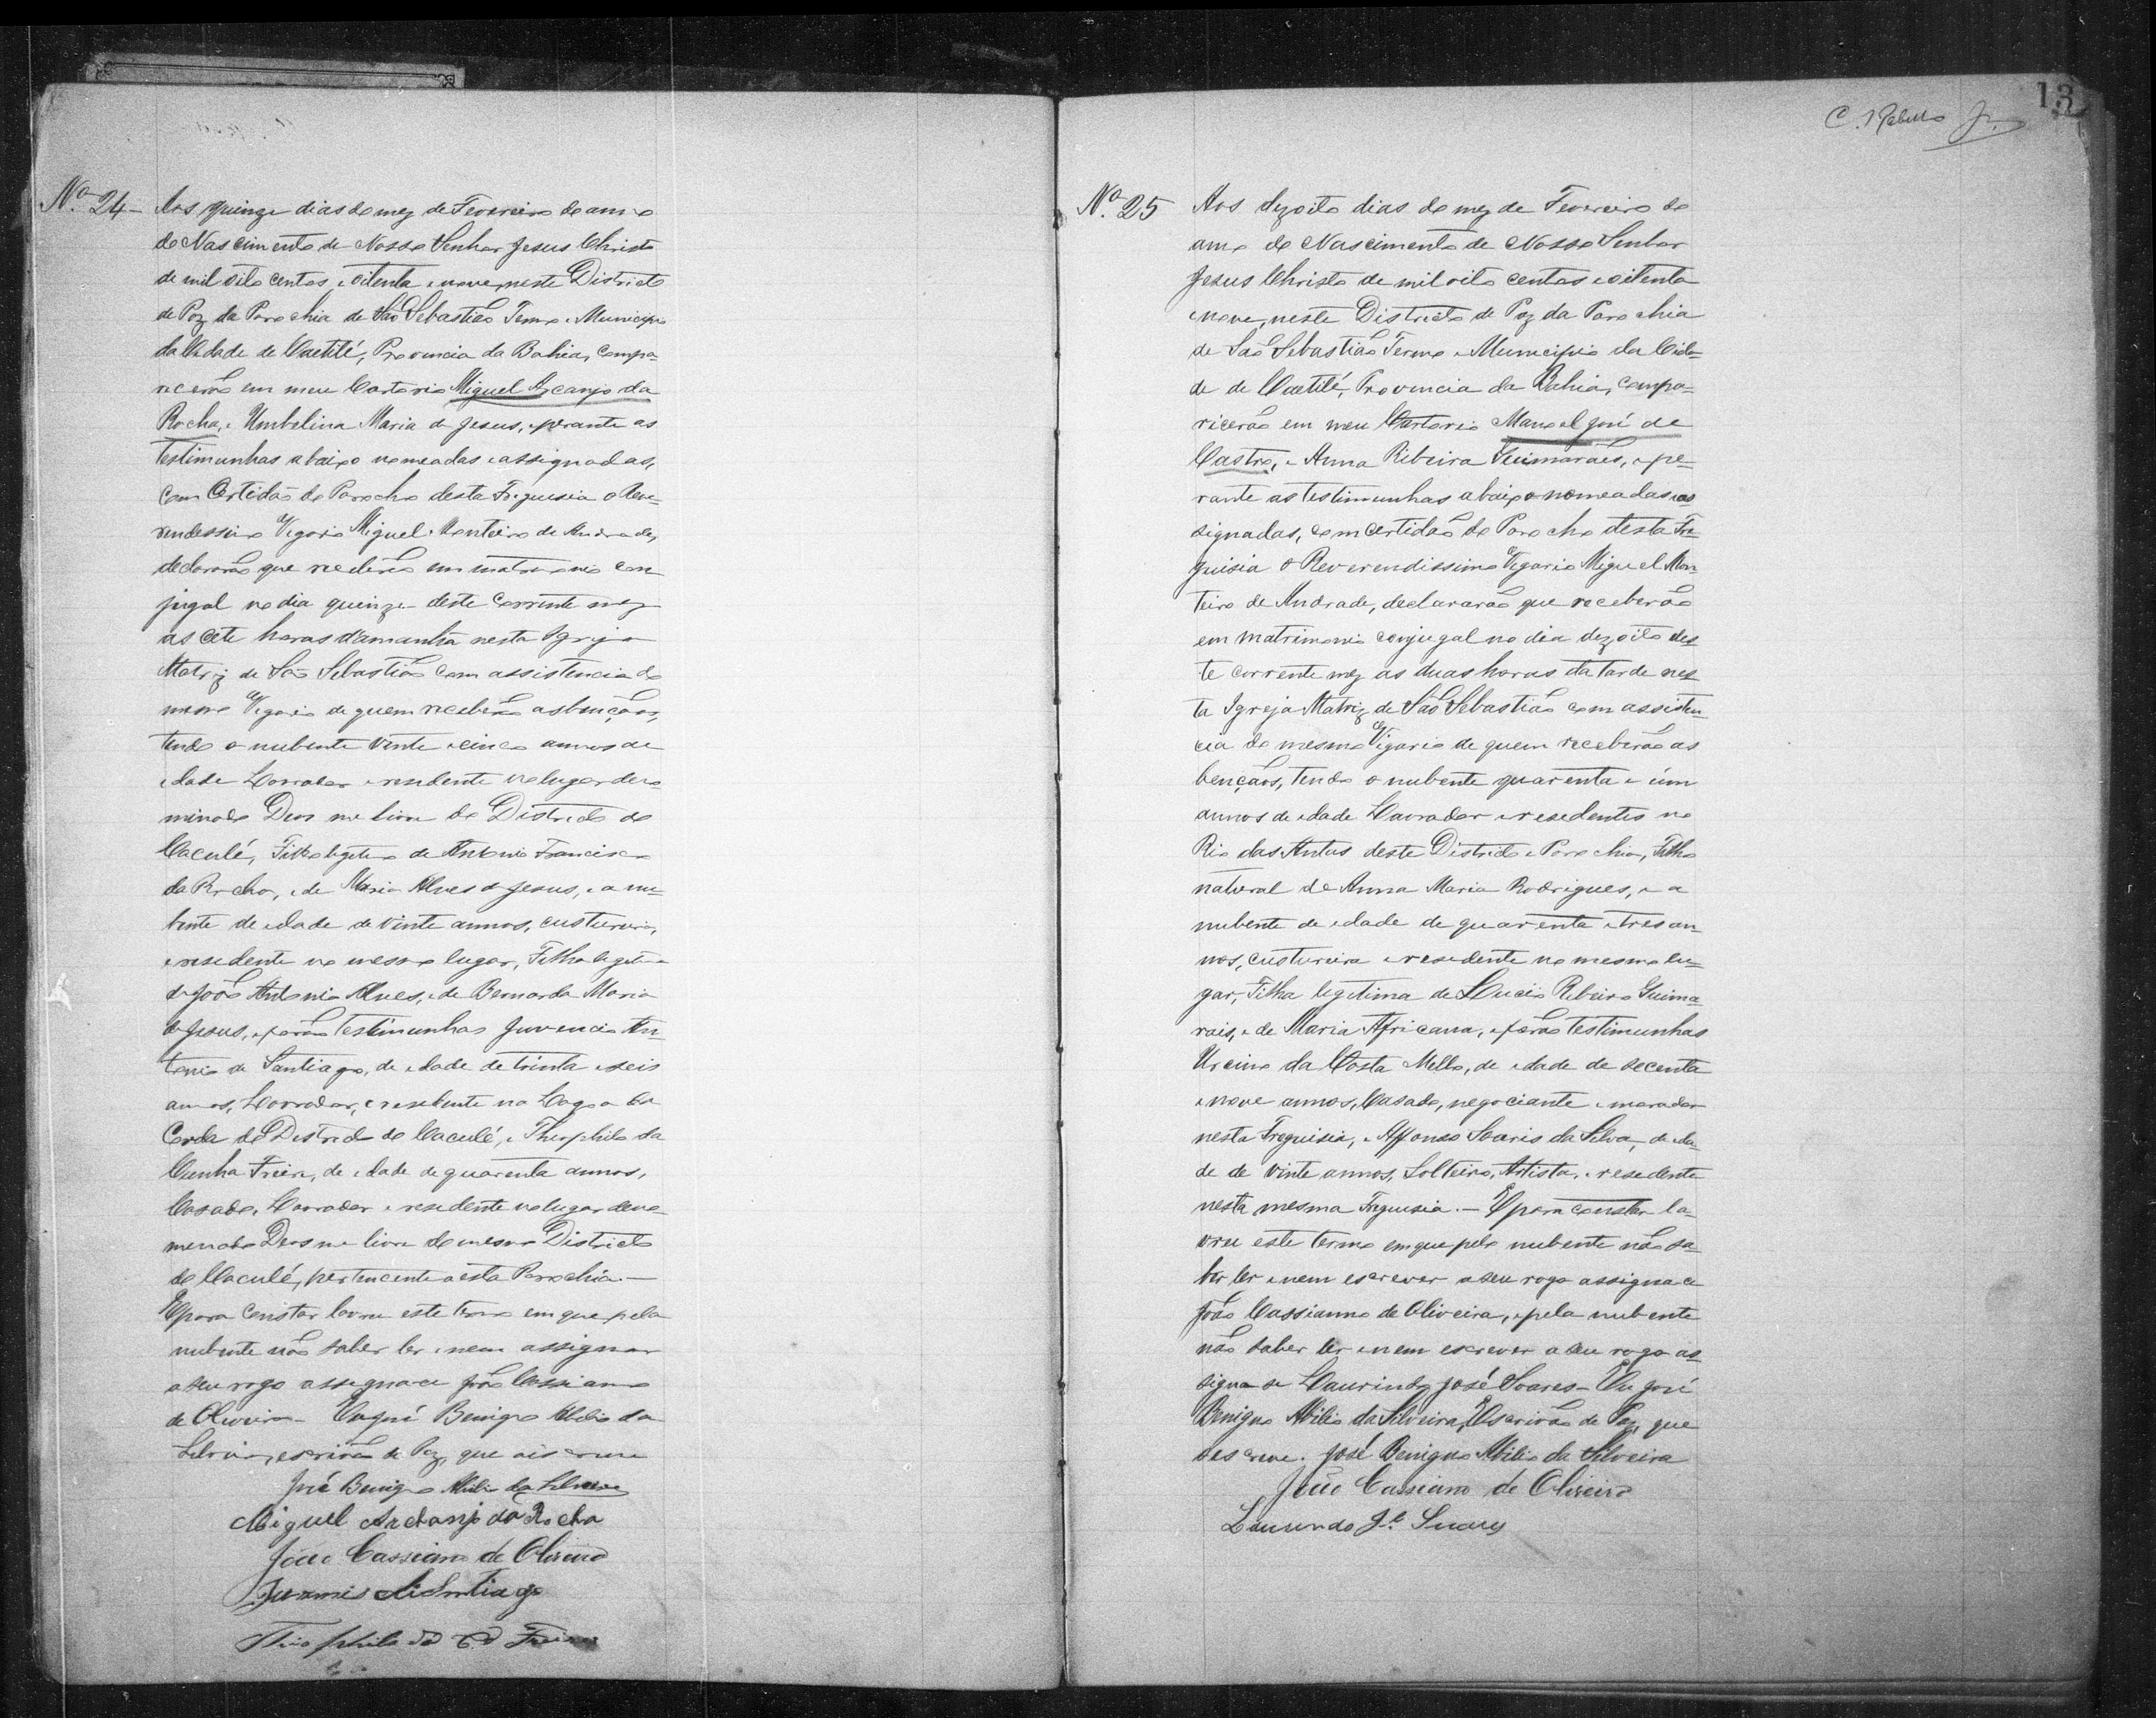 Nº 24 – Aos quinze dias do mez de Fevereiro do anno
do Nascimento de Nosso Senhor Jesus Christo
de mil oito centos e oitenta e nove, neste Districto
de Paz da Parochia de São Sebastião Termo e Municipio
da Cidade de Caetité, Provincia da Bahia, compa-
recerão em meu Cartorio Miguel Arcanjo da
Rocha, e Umbelina Maria de Jesus, e perante as
testimunhas abaixo nomeadas e assignadas,
com Certidão do Parocho desta Freguesia o Reve-
rendessimo Vigario Miguel Monteiro de Andrade,
declararão que receberão em matrimonio con-
jugal no dia quinze deste corrente mez
as cete horas d'amanhã nesta Igreja
Matriz de São Sebastião com assistencia do
mesmo Vigario de quem receberão as bençãos,
tendo o nubente vinte e cinco annos de
edade Lavrador e residente no lugar deno
minado Deos me livre do Districto do
Caculé, Filho legitimo de Antonio Francisco
da Rocha, e de Maria Alves de Jesus, e a nu-
bente de edade de vinte annos, custureira,
e residente no mesmo lugar, Filha legitima
de João Antonio Alves, e de Bernarda Maria
de Jesus, e forão testimunhas Juvencio An-
tonio de Santiago, de edade de trinta e seis
annos, Lavrador, e residente na Lagoa da
Corda do Districto do Caculé, e Theophilo da
Cunha Freire, de edade de quarenta annos,
Casado, Lavrador e residente no lugar deno-
menado Deos me livre do mesmo Districto
do Caculé, pertencente a esta Parochia. –
E para constar lavrei este termo em que pela
nubente não saber ler e nem assignar
a seu rogo assignace João Cassiano
de Oliveira – Eu José Benigno Abilio da
Silveira, escrivão de Paz, que o iscreve
José Benigno Abilio da Silveira
Miguel Archanjo da Rocha
João Cassiano de Oliveira
Theophilo da Cª Freire
13
C. Rabello Jr.
Nº 25 Aos dezoito dias do mez de Fevereiro do
anno do Nascimento de Nosso Senhor
Jesus Christo de mil oito centos e oitenta
e nove, neste Districto de Paz da Parochia
de São Sebastião Termo e Municipio da Cida-
de de Caetité, Provincia da Bahia, compa-
ricerão em meu Cartorio Manoel José de
Castro, e Anna Ribeira Guimarães, e pe-
rante as testimunhas abaixo nomeadas e as
signadas, com certidão do Parocho desta Fre-
guisia o Reverendissimo Vigario Miguel Mon-
teiro de Andrade, declararão que receberão
em matrimonio conjugal no dia dezoito des-
te corrente mez as duas horas da tarde nes-
ta Igreja Matriz de São Sebastião com assisten-
cia do mesmo Vigario de quem receberão as
bençãos, tendo o nubente quarenta e um
annos de edade Lavrador e resedentes no
Rio das Antas deste Districto e Parochia, Filho
natural de Anna Maria Rodrigues, e a
nubente de edade de quarenta e tres an-
nos, custureira e resedente no mesmo lu-
gar, Filha legitima de Lucio Ribeiro Guima-
rais, e de Maria Africana, e forão testimunhas
Urcino da Costa Mello, de edade de secenta
e nove annos, Casado, negociante e morador
nesta Freguisia, e Affonso Soaris da Silva, de eda-
de de vinte annos, Solteiro, Artista, e resedente
nesta mesma Freguisia. – E para constar la-
vrei este termo em que pelo nubente não sa-
ber ler e nem escrever a seu rogo assignace
João Cassianno de Oliveira, e pela nubente
não saber ler e nem escrever a seu rogo as-
signa-se Laurindo José Soares – Eu José
Benigno Abilio da Silveira, Escrivão de Paz, que
o escreve. José Benigno Abilio da Silveira
João Cassiano de Oliveira
Laurindo Jé Soares